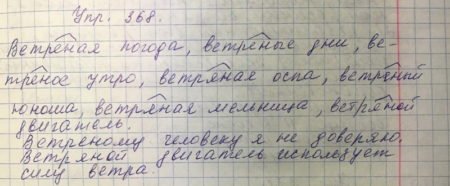 Упр. 368.
Ветреная погода, ветреные дни, ве-
треное утро, ветряная оспа, ветреный
юноша, ветряная мельница, ветряной
двигатель.
Ветреному человеку я не доверяю.
Ветряной двигатель использует
силу ветра.